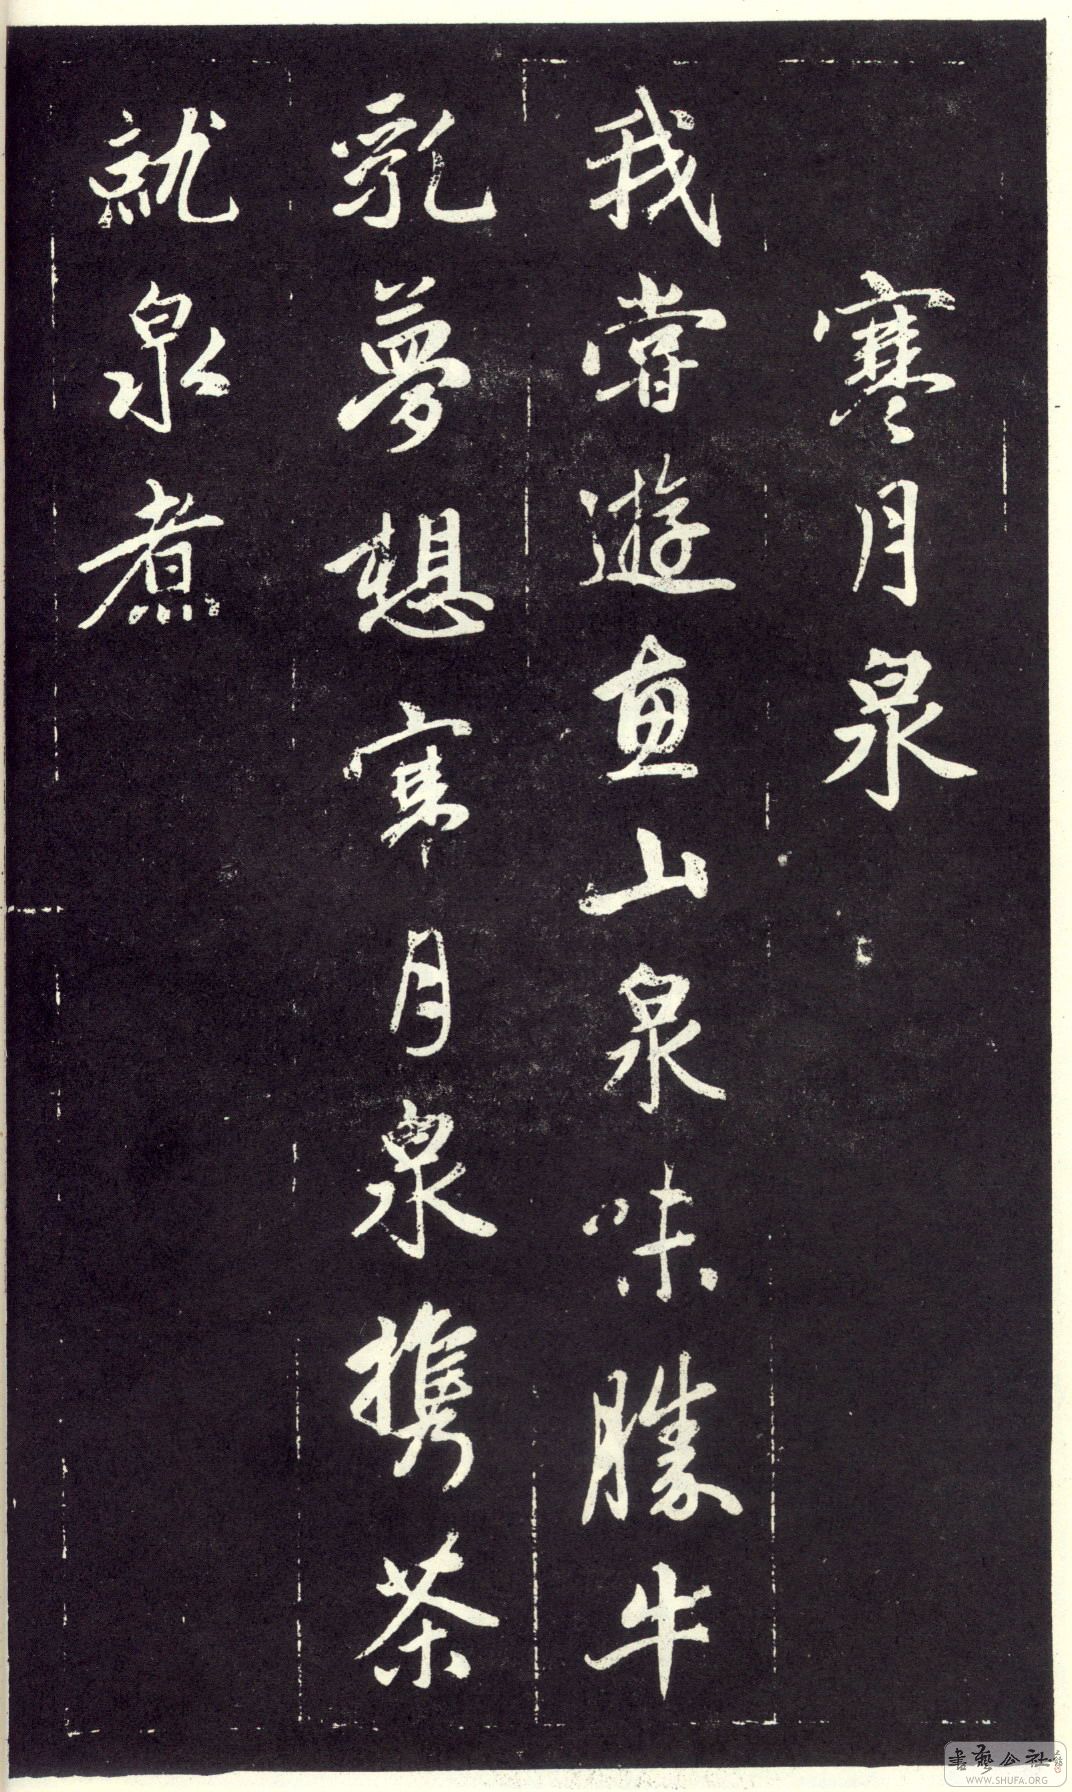 寒月泉
我嘗遊惠山泉味勝牛
乳夢想寒月泉攜茶
就泉煮
書藝公社
WWW.SHUFA.ORG